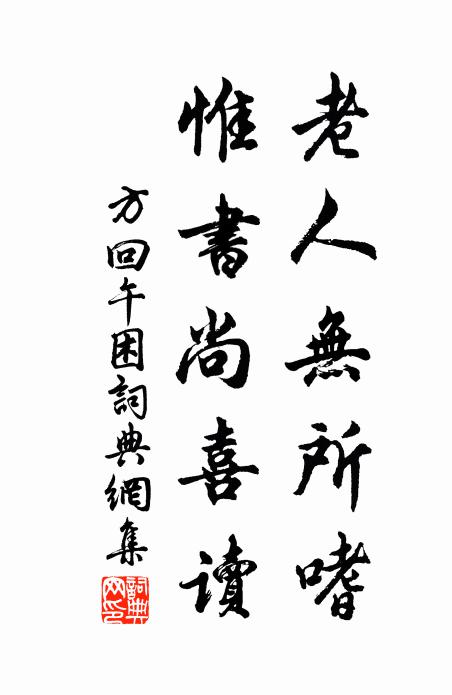 老人無所嗜
惟書尚喜讀
方回午困詞典網集